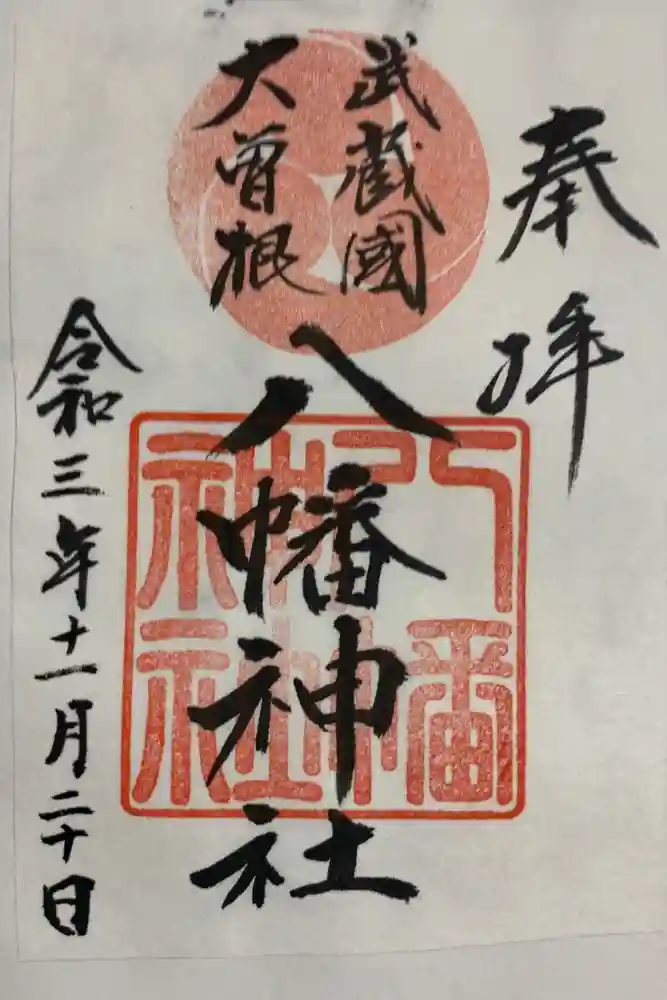 奉拝
武蔵國
大曽根
八幡神社
令和三年十一月二十日
八幡神社